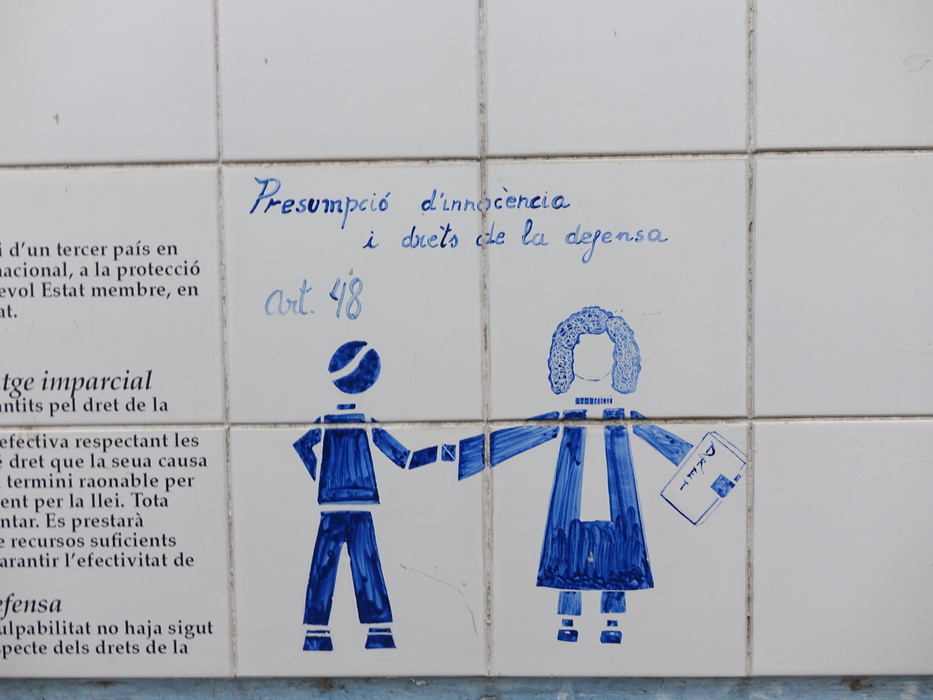 i d'un tercer país en
nacional, a la protecció
evol Estat membre, en
at.
tge imparcial
antits pel dret de la
efectiva respectant les
dret que la seua causa
termini raonable per
ent per la llei. Tota
ntar. Es prestarà
e recursos suficients
arantir l'efectivitat de
efensa
ulpabilitat no haja sigut
specte dels drets de la
Presumpció d'innocència
i drets de la defensa
Art. 48
DRET